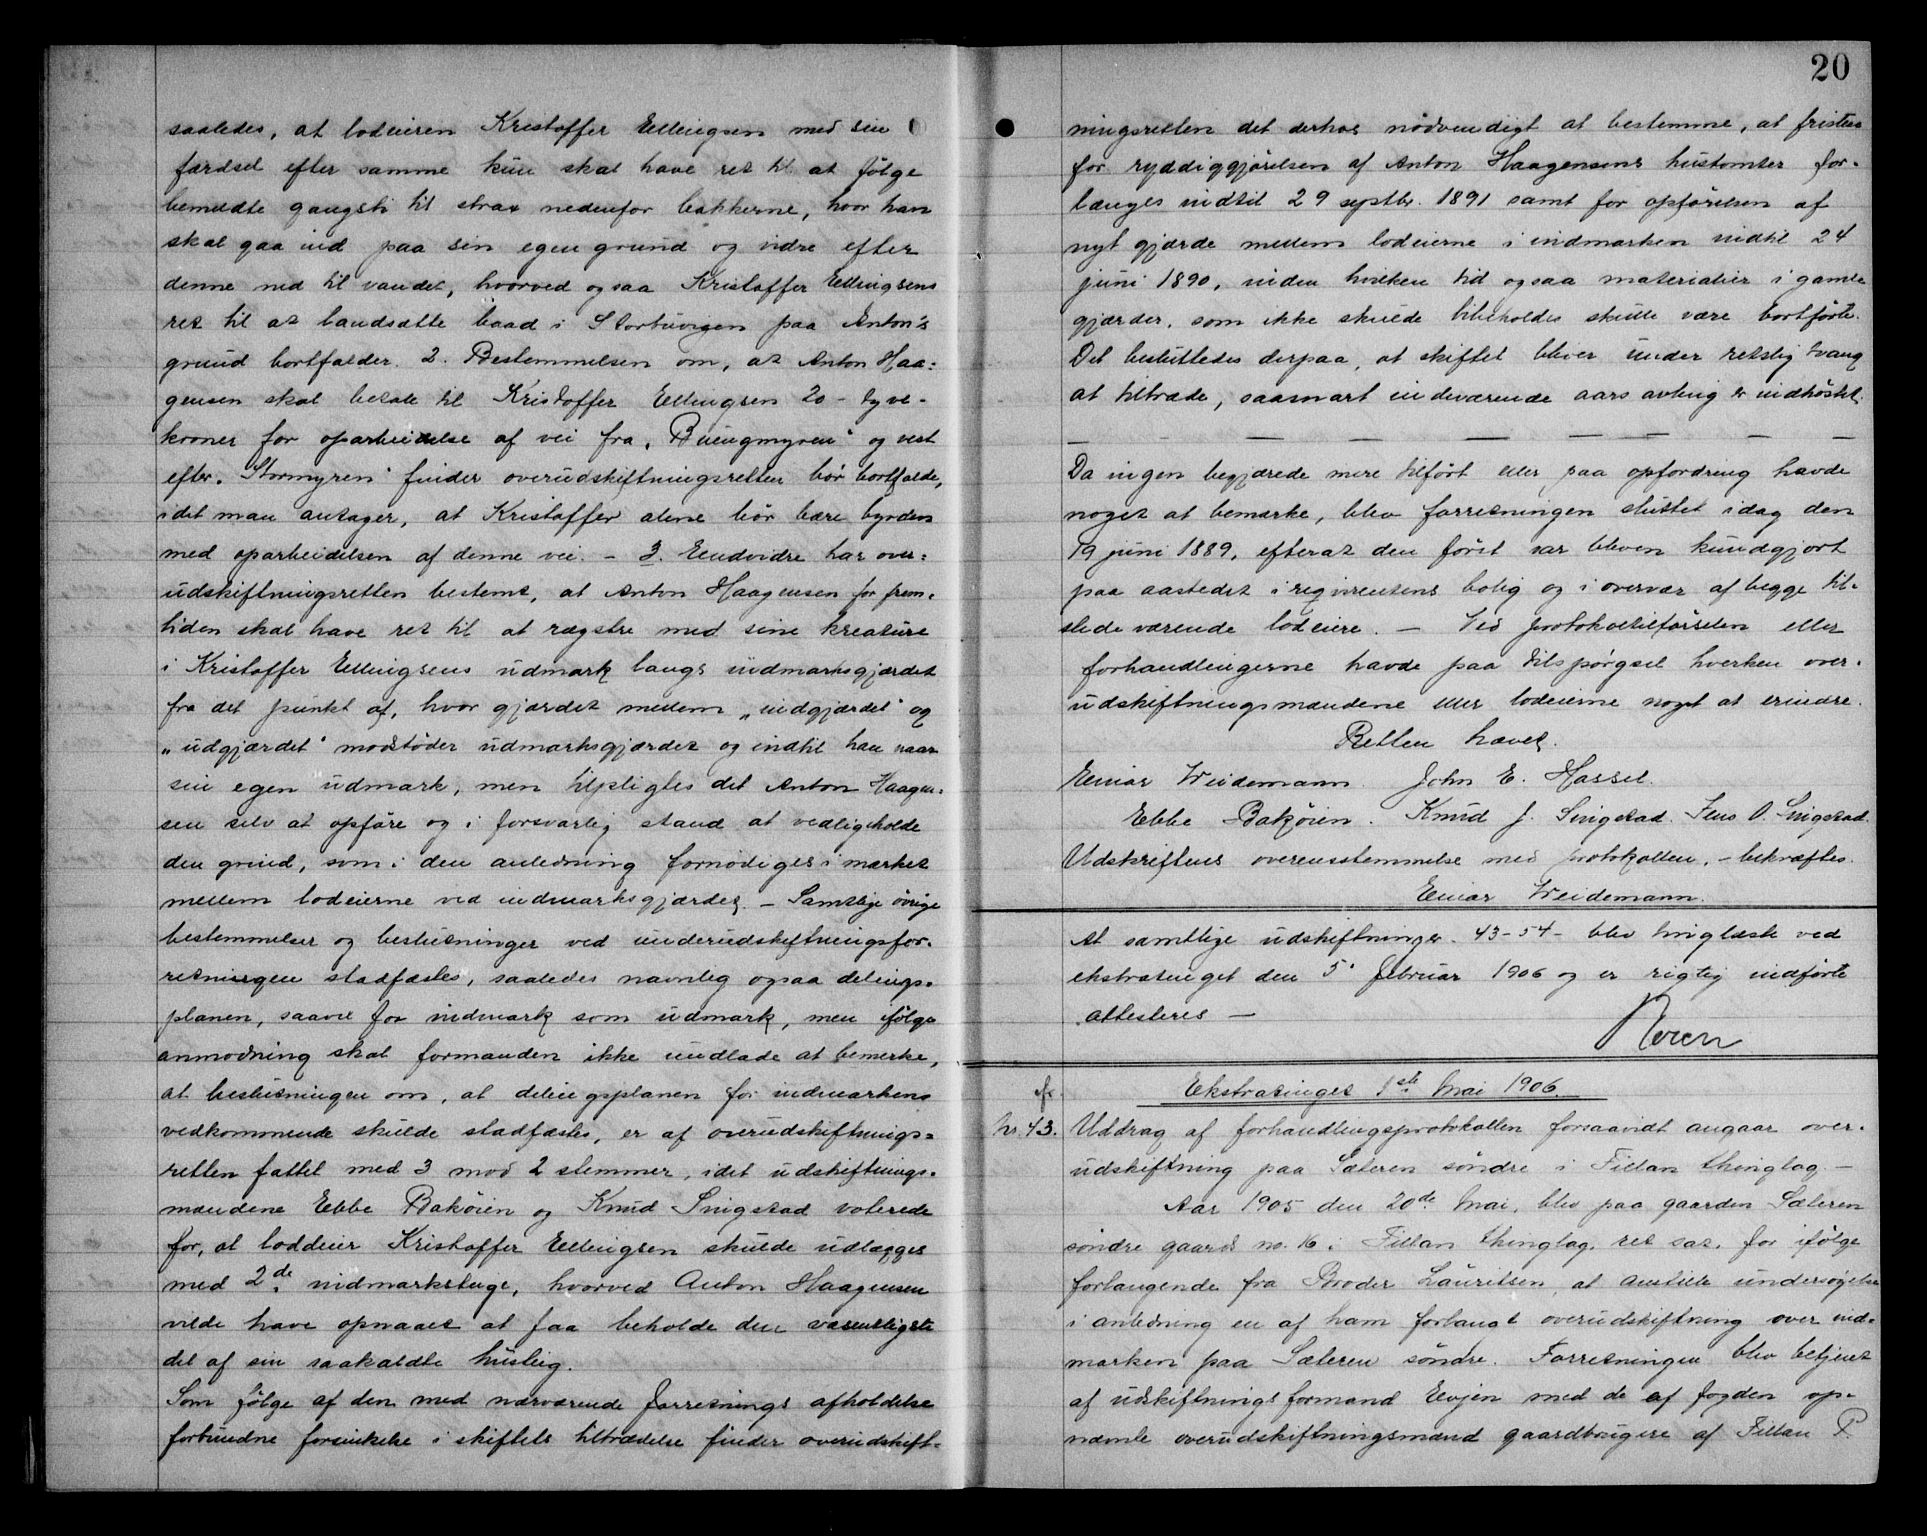 saaledes, at lodeieren Kristoffer Ellingsen med sin
færdsel efter samme kun skal have ret til at følge
bemeldte gangsti til strax nedenfor bakkerne, hvor han
skal gaa ind paa sin egen grund og vidre efter
denne ned til vandet, hvorved ogsaa Kristoffer Ellingsens
ret til at landsætte baad i Storbuvigen paa Anton's
grund bortfalder. 2. Bestemmelsen om, at Anton Haa=
gensen skal betale til Kristoffer Ellingsen 20 - tyve -
kroner for oparbeidelse af vei fra "Buengmyren" og vest
efter "Stormyren" finder overudskiftningsretten bør bortfalde,
idet man antager, at Kristoffer alene bør bære byrden
med oparbeidelsen af denne vei. - 3. Endvidre har over=
udskiftningsretten bestemt, at Anton Haagensen for frem-
tiden skal have ret til at rægstre med sine kreature
i Kristoffer Ellingsens udmark langs indmarksgjærdet
fra det punkt af, hvor gjærdet mellem "indgjærdet" og
"udgjærdet" modstøder udmarksgjærdet og indtil han naar
sin egen udmark, men tilpligtes det Anton Haagen-
sen selv at opføre og i forsvarlig stand at vedligeholde
den grind, som i den anledning fornødiges i mærket
mellem lodeierne ved indmarksgjærdet. - Samtlige øvrige
bestemmelser og beslutninger ved underudskiftningsfor-
retningen stadfæstes, saaledes navnlig ogsaa delings-
planen, saavel for indmark som udmark, men ifølge
anmodning skal formanden ikke undlade at bemerke,
at beslutningen om, at delingsplanen for indmarkens
vedkommende skulde stadfæstes, er af overudskiftnings=
retten fattet med 3 mod 2 stemmer, idet udskiftnings-
mændene Ebbe Bakøien og Knud Singstad voterede
for, at loddeier Kristoffer Ellingsen skulde udlægges
med 2de indmarksteige, hvorved Anton Haagensen
vilde have opnaaet at faa beholde den væsentligste
del af sin saakaldte husteig.
Som følge af den med nærværende forretnings afholdelse
forbundne forsinkelse i skiftets tiltrædelse finder overudskift-
20
ningsretten det derhos nødvendigt at bestemme, at fristen
for ryddiggjørelsen af Anton Haagensens hustomter for-
længes indtil 29 septbr. 1891 samt for opførelsen af
nyt gjærde mellem lodeierne i indmarken indtil 24
juni 1890, inden hvilken tid ogsaa materialier i gamle
gjærder, som ikke skulde bibeholdes skulle være bortførte.
Det besluttedes derpaa, at skiftet bliver under retslig tvang
at tiltræde, saasnart indeværende aars avling er indhøstet.
Da ingen begjærede mere tilført eller paa opfordring havde
noget at bemærke, blev forretningen sluttet idag den
19 juni 1889, efterat den først var bleven kundgjort
paa aastedet i reqvirentens bolig og i overvær af begge til-
stedeværende lodeiere. - Ved protokoltilførselen eller
forhandlingerne havde paa tilspørgsel hverken over-
udskiftningsmændene eller lodeierne noget at erindre.
Retten hævet.
Einar Weidemann. John E. Hassel.
Ebbe Bakøien. Knud J. Singstad. Jens O. Singstad.
Udskriftens overensstemmelse med protokollen, - bekræftes.
Einar Weidemann.
At samtlige udskiftninger. 43-54- blev tinglæste ved
ekstratinget den 5. februar 1906 og er rigtig indførte
attesteres -
Ekstratinget 1ste Mai 1906.
Nr. 43. Uddrag af forhandlingsprotokollen forsaavidt angaar over-
udskiftning paa Sæteren søndre i Fillan thinglag. -
Aar 1905 den 20de Mai, blev paa gaarden Sæteren
søndre gaards no. 16 i Fillan thinglag, ret sat, for ifølge
forlangende fra Broder Lauritsen, at anstille undersøgelse
i anledning en af ham forlangt overudskiftning over ind-
marken paa Sæteren søndre. Forretningen blev betjent
af udskiftningsformand Evjen med de af fogden op-
nævnte overudskiftningsmænd gaardbrugere af Fillan P.